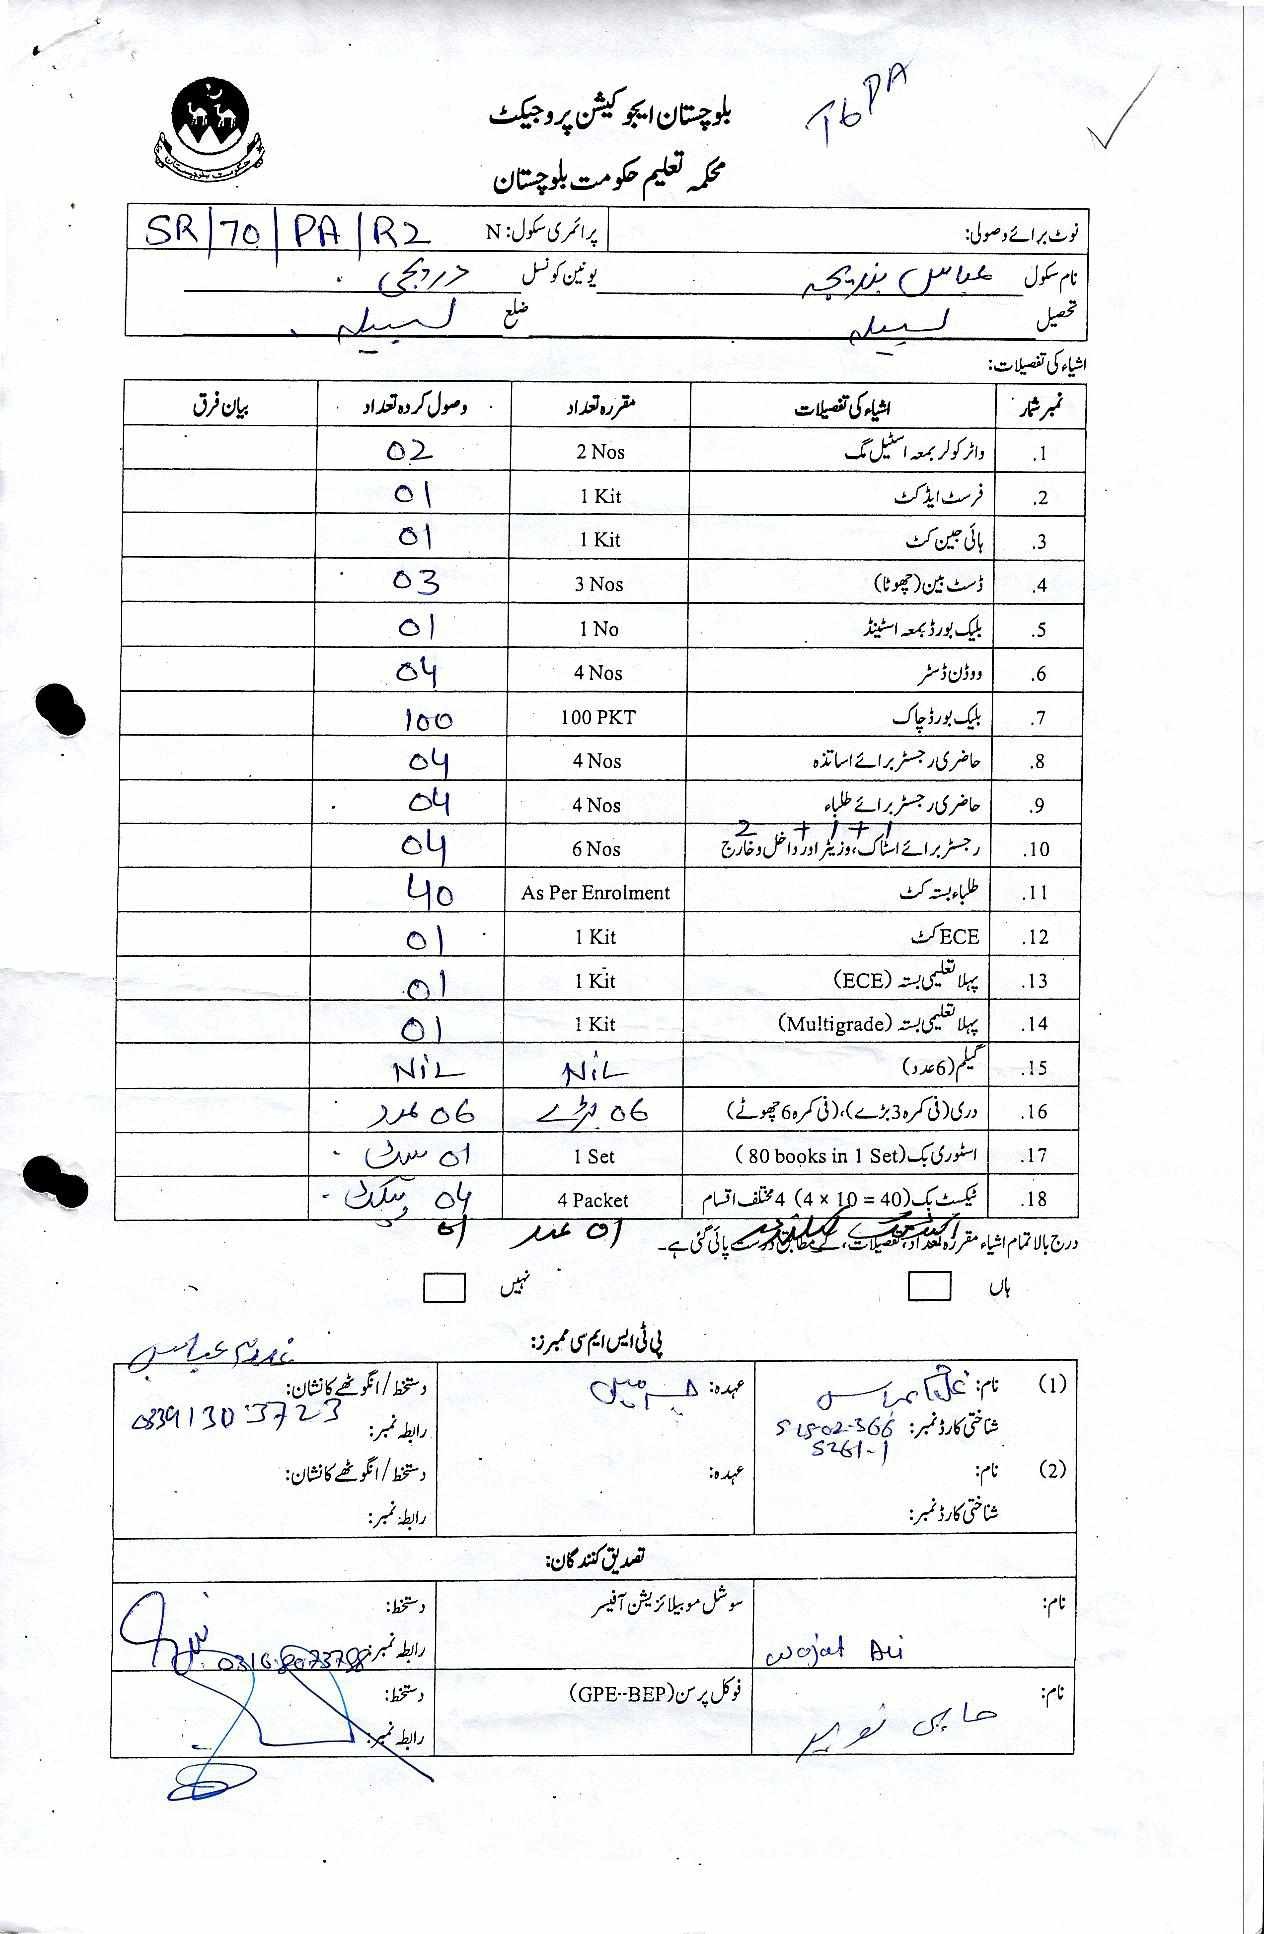 T6 PA
بلوچستان ایجوکیشن پروجیکٹ
محکمہ تعلیم حکومت بلوچستان
نوٹ برائے وصولی: پرائمری سکول: N SR/70/PA/R2
نام سکول عباس بندیجہ یونین کونسل دریجی
تحصیل لسبیلہ ضلع لسبیلہ
اشیاء کی تفصیلات:
نمبر شمار اشیاء کی تفصیلات مقررہ تعداد وصول کردہ تعداد بیان فرق
1. واٹر کولر بمعہ اسٹیل مگ 2 Nos 02
2. فرسٹ ایڈ کٹ 1 Kit 01
3. ہائی جین کٹ 1 Kit 01
4. ڈسٹ بین (چھوٹا) 3 Nos 03
5. بلیک بورڈ بمعہ اسٹینڈ 1 No 01
6. ووڈن ڈسٹر 4 Nos 04
7. بلیک بورڈ چاک 100 PKT 100
8. حاضری رجسٹر برائے اساتذہ 4 Nos 04
9. حاضری رجسٹر برائے طلباء 4 Nos 04
2 + 1 + 1
10. رجسٹر برائے اسٹاک، وزیٹر اور داخل و خارج 6 Nos 04
11. طلباء بستہ کٹ As Per Enrolment 40
12. ECE کٹ 1 Kit 01
13. پہلا تعلیمی بستہ (ECE) 1 Kit 01
14. پہلا تعلیمی بستہ (Multigrade) 1 Kit 01
15. گیلم (6 عدد) NiL NiL
16. دری (فی کمرہ 3 بڑے)، (فی کمرہ 6 چھوٹے) 06 بڑے 06 عدد
17. اسٹوری بک (80 books in 1 Set) 1 Set 01 سیٹ
18. ٹیکسٹ بک (4 x 10 = 40) 4 مختلف اقسام 4 Packet 04 پیکٹ
01 عدد 01
درج بالا تمام اشیاء مقررہ تعداد، تفصیلات، کے مطابق درست پائی گئی ہے۔
ہاں نہیں
پی ٹی ایس ایم سی ممبرز:
غلام عباس
(1) نام: غلام عباس عہدہ: دستخط / انگوٹھے کا نشان:
شناختی کارڈ نمبر: 51502-366 5261-1 رابطہ نمبر: 03391303723
(2) نام: عہدہ: دستخط / انگوٹھے کا نشان:
شناختی کارڈ نمبر: رابطہ نمبر:
تصدیق کنندگان:
نام: سوشل موبیلائزیشن آفیسر دستخط:
Wajat Ali رابطہ نمبر: 0316-8073788
نام: فوکل پرسن (GPE--BEP) دستخط:
حاجی نور رابطہ نمبر: